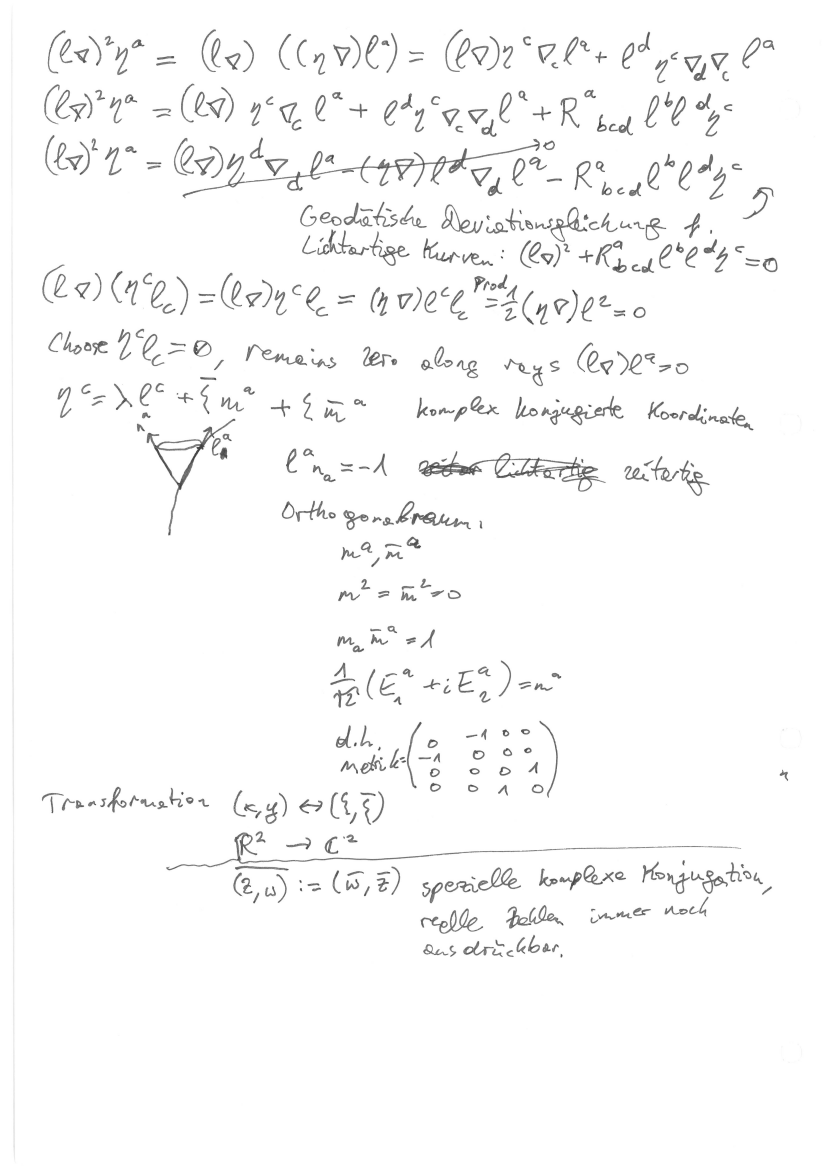 (l∇)²ηᵃ = (l∇) ((η∇)lᵃ) = (l∇)ηᶜ∇_c lᵃ + lᵈ ηᶜ∇_d∇_c lᵃ
(l∇)²ηᵃ = (l∇) ηᶜ∇_c lᵃ + lᵈηᶜ∇_c∇_d lᵃ + Rᵃ_bcd lᵇlᵈηᶜ
(l∇)²ηᵃ = (l∇)ηᵈ∇_d lᵃ - (η∇)lᵈ∇_d lᵃ →0 - Rᵃ_bcd lᵇlᵈηᶜ
Geodätische Deviationsgleichung f.
Lichtartige Kurven: (l∇)² + Rᵃ_bcd lᵇlᵈηᶜ=0
(l∇)(ηᶜl_c) = (l∇)ηᶜl_c = (η∇)lᶜl_c =^Prod. 1/2 (η∇)l²=0
Choose ηᶜl_c=0, remains zero along rays (l∇)lᵃ=0
ηᶜ = λlᶜ + ξ̄mᵃ + ξm̄ᵃ komplex konjugierte Koordinaten
nᵃ lᵃ
lᵃnₐ = -1 lichtartig zeitartig
Orthogonalraum:
mᵃ, m̄ᵃ
m² = m̄²=0
mₐm̄ᵃ = 1
1/√2 (E₁ᵃ + iE₂ᵃ) = mᵃ
d.h.
metrik= (0 -1 0 0
-1 0 0 0
0 0 0 1
0 0 1 0)
Transformation (x,y) ↔ (ξ,ξ̄)
ℝ² → ℂ²
\overline{(z,w)} := (w̄,z̄) spezielle komplexe Konjugation,
reelle Zahlen immer noch
ausdrückbar.